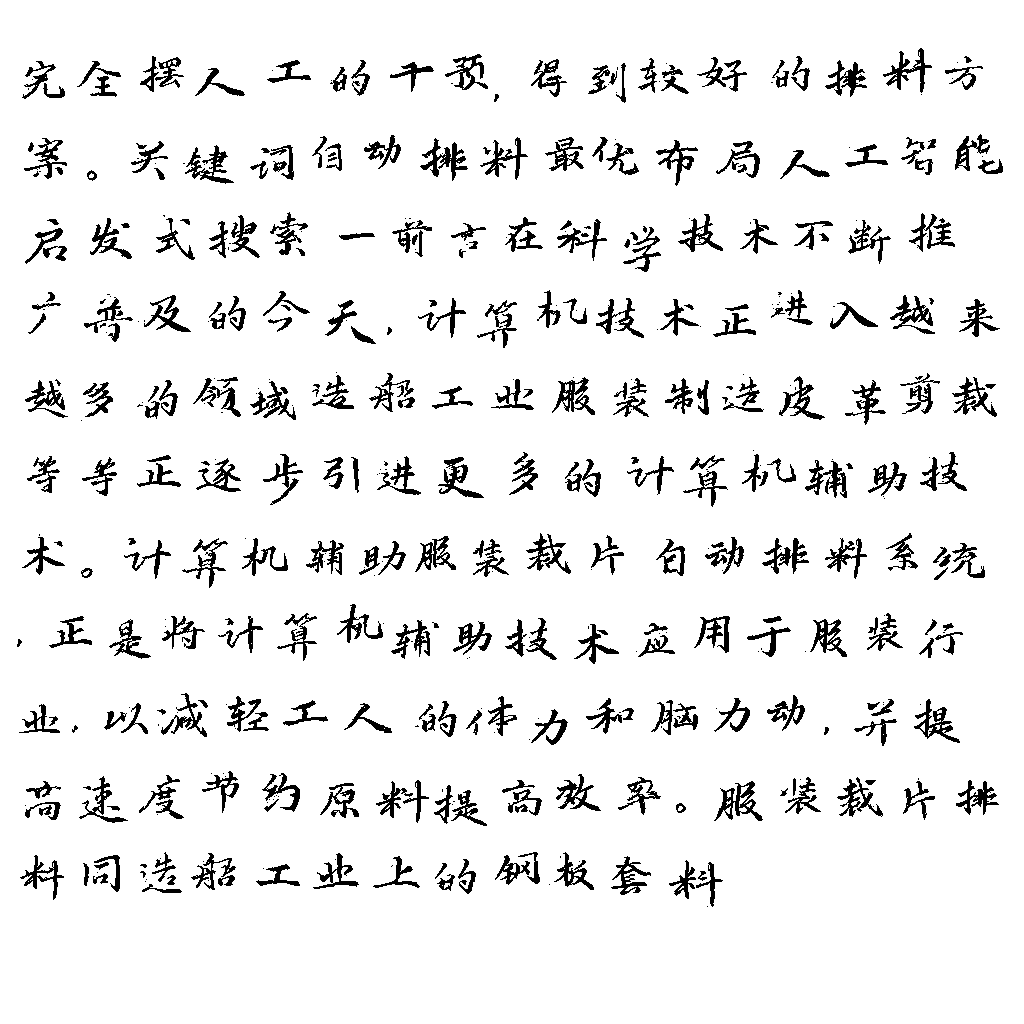 完全摆人工的干预,得到较好的排料方
案。关键词自动排料最优布局人工智能
启发式搜索一前言在科学技术不断推
广普及的今天,计算机技术正进入越来
越多的领域造船工业服装制造皮革剪裁
等等正逐步引进更多的计算机辅助技
术。计算机辅助服装裁片自动排料系统
,正是将计算机辅助技术应用于服装行
业,以减轻工人的体力和脑力动,并提
高速度节约原料提高效率。服装裁片排
料同造船工业上的钢板套料